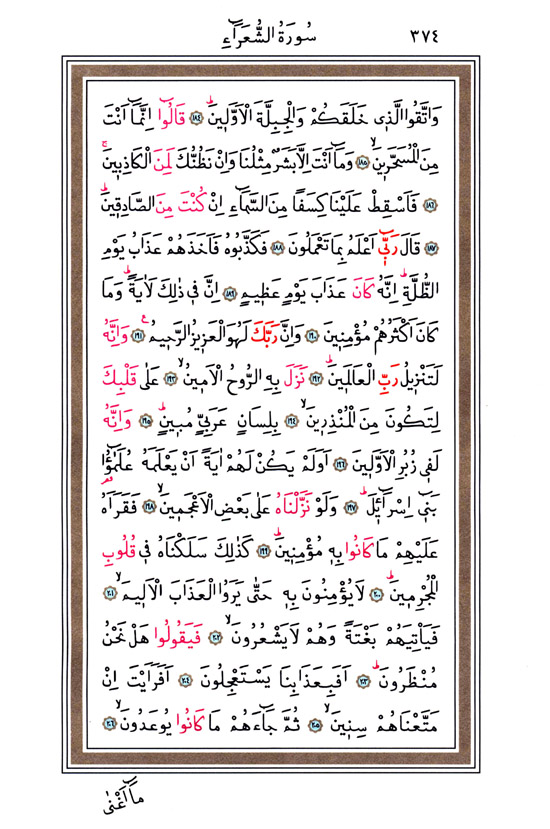 ٣٧٤ سُورَةُ الشُّعَرَٓاءِ
وَاتَّقُوا الَّذ۪ي خَلَقَكُمْ وَالْجِبِلَّةَ الْاَوَّل۪ينَۜ ﴿١٨٤﴾ قَالُٓوا اِنَّمَٓا اَنْتَ
مِنَ الْمُسَحَّر۪ينَۙ ﴿١٨٥﴾ وَمَٓا اَنْتَ اِلَّا بَشَرٌ مِثْلُنَا وَاِنْ نَظُنُّكَ لَمِنَ الْكَاذِب۪ينَۚ
﴿١٨٦﴾ فَاَسْقِطْ عَلَيْنَا كِسَفًا مِنَ السَّمَٓاءِ اِنْ كُنْتَ مِنَ الصَّادِق۪ينَۜ
﴿١٨٧﴾ قَالَ رَبّ۪ٓي اَعْلَمُ بِمَا تَعْمَلُونَ ﴿١٨٨﴾ فَكَذَّبُوهُ فَاَخَذَهُمْ عَذَابُ يَوْمِ
الظُّلَّةِۜ اِنَّهُ كَانَ عَذَابَ يَوْمٍ عَظ۪يمٍ ﴿١٨٩﴾ اِنَّ ف۪ي ذٰلِكَ لَاٰيَةًۜ وَمَا
كَانَ اَكْثَرُهُمْ مُؤْمِن۪ينَ ﴿١٩٠﴾ وَاِنَّ رَبَّكَ لَهُوَ الْعَز۪يزُ الرَّح۪يمُ۟ ﴿١٩١﴾ وَاِنَّهُ
لَتَنْز۪يلُ رَبِّ الْعَالَم۪ينَۜ ﴿١٩٢﴾ نَزَلَ بِهِ الرُّوحُ الْاَم۪ينُۙ ﴿١٩٣﴾ عَلٰى قَلْبِكَ
لِتَكُونَ مِنَ الْمُنْذِر۪ينَۙ ﴿١٩٤﴾ بِلِسَانٍ عَرَبِيٍّ مُب۪ينٍۜ ﴿١٩٥﴾ وَاِنَّهُ
لَف۪ي زُبُرِ الْاَوَّل۪ينَ ﴿١٩٦﴾ اَوَلَمْ يَكُنْ لَهُمْ اٰيَةً اَنْ يَعْلَمَهُ عُلَمٰٓؤُا
بَن۪ٓي اِسْرَٓائ۪لَۜ ﴿١٩٧﴾ وَلَوْ نَزَّلْنَاهُ عَلٰى بَعْضِ الْاَعْجَم۪ينَۙ ﴿١٩٨﴾ فَقَرَاَهُ
عَلَيْهِمْ مَا كَانُوا بِه۪ مُؤْمِن۪ينَۜ ﴿١٩٩﴾ كَذٰلِكَ سَلَكْنَاهُ ف۪ي قُلُوبِ
الْمُجْرِم۪ينَۜ ﴿٢٠٠﴾ لَا يُؤْمِنُونَ بِه۪ حَتّٰى يَرَوُا الْعَذَابَ الْاَل۪يمَۙ ﴿٢٠١﴾
فَيَأْتِيَهُمْ بَغْتَةً وَهُمْ لَا يَشْعُرُونَۙ ﴿٢٠٢﴾ فَيَقُولُوا هَلْ نَحْنُ
مُنْظَرُونَۜ ﴿٢٠٣﴾ اَفَبِعَذَابِنَا يَسْتَعْجِلُونَ ﴿٢٠٤﴾ اَفَرَاَيْتَ اِنْ
مَتَّعْنَاهُمْ سِن۪ينَۙ ﴿٢٠٥﴾ ثُمَّ جَٓاءَهُمْ مَا كَانُوا يُوعَدُونَۙ ﴿٢٠٦﴾
مَٓا اَغْنٰى